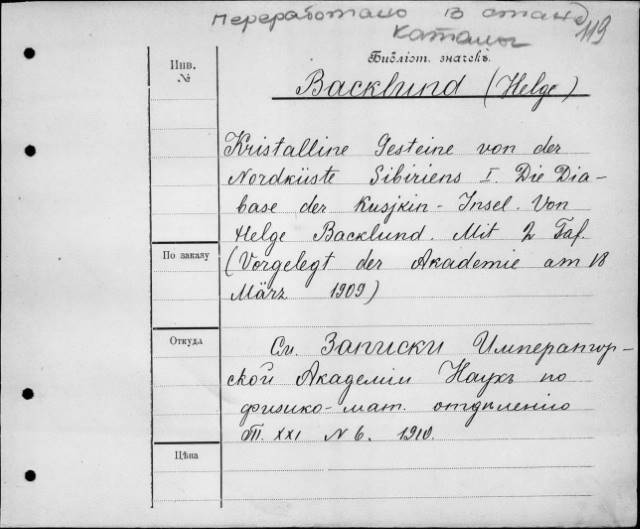 Переработано в станд
каталог
119
Инв.
№
Библіот. значекъ.
Backlund (Helge)
Kristalline Gesteine von der
Nordküste Sibiriens I. Die Dia-
base der Kusjkin-Insel. Von
Helge Backlund. Mit 2 Taf.
По заказу
(Vorgelegt der Akademie am 18
März 1909)
Откуда
См. Записки Император-
ской Академіи Наукъ по
физико-мат. отдѣленію
Т. XXI N 6. 1910.
Цѣна